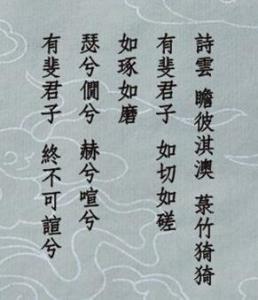 詩雲 瞻彼淇澳 菉竹猗猗
有斐君子 如切如磋
如琢如磨
瑟兮僩兮 赫兮喧兮
有斐君子 終不可諠兮